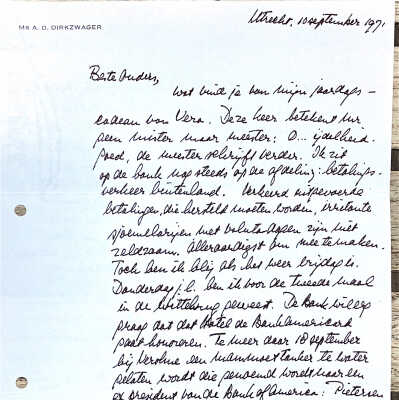 MR A. D. DIRKZWAGER
Utrecht, 10 september 1971
Beste Ouders,
wat vind je van mijn jaardags-
cadeau van Vera. Deze keer betekent Mr
geen mister maar meester: O... ijdelheid.
Goed, de meester schrijft verder. Ik zit
op de bank nog steeds op de afdeling: betalings-
verkeer buitenland. Verkeerd uitgevoerde
betalingen, die hersteld moeten worden, irritante
met valuta dagen zijn niet
zeldzaam. Alleraardigst om mee te maken.
Toch ben ik blij als het weer vrijdag is.
Donderdag j.l. ben ik voor de tweede maal
in de Wittebrug geweest. De Bank wil erg
graag dat dat Hotel de BankAmericard
gaat honoreren. Te meer daar 18 september
bij Verolme een mammoettanker te water
gelaten wordt die genoemd wordt naar een
ex president van de Bank of America: Pietersen